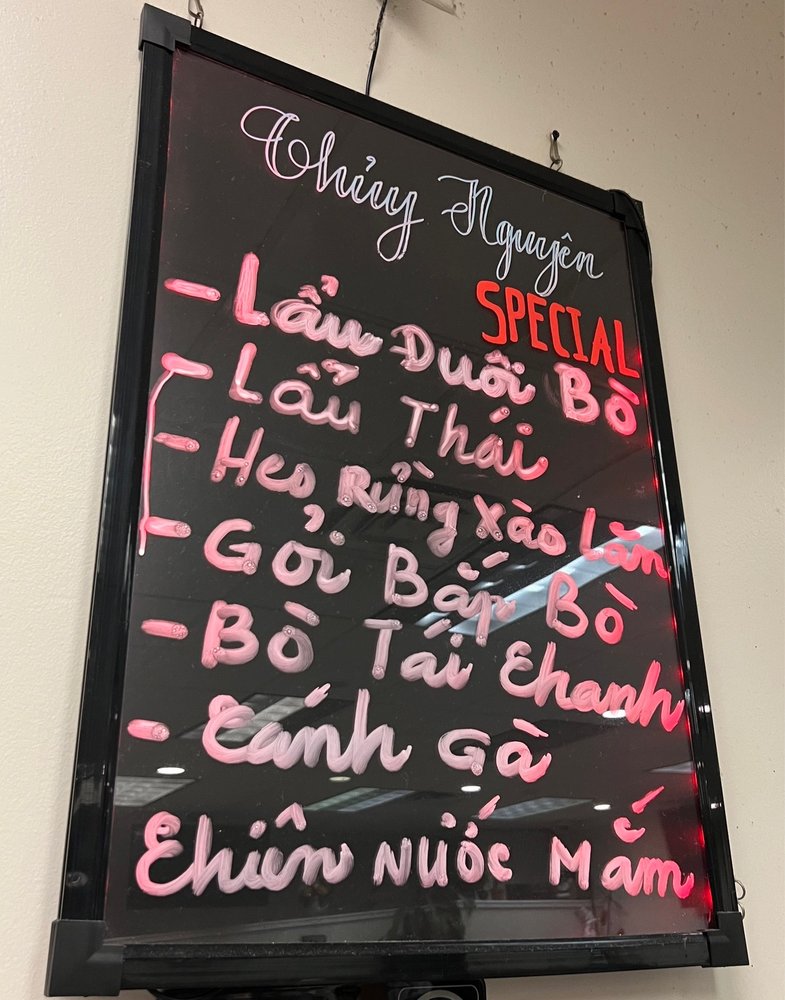 Thủy Nguyên
SPECIAL
- Lẩu Đuôi Bò
- Lẩu Thái
- Heo Rừng Xào Lăn
- Gỏi Bắp Bò
- Bò Tái Chanh
- Cánh Gà
Chiên Nước Mắm